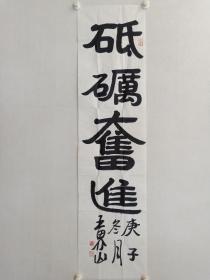 砥礪奮進
庚子
冬月